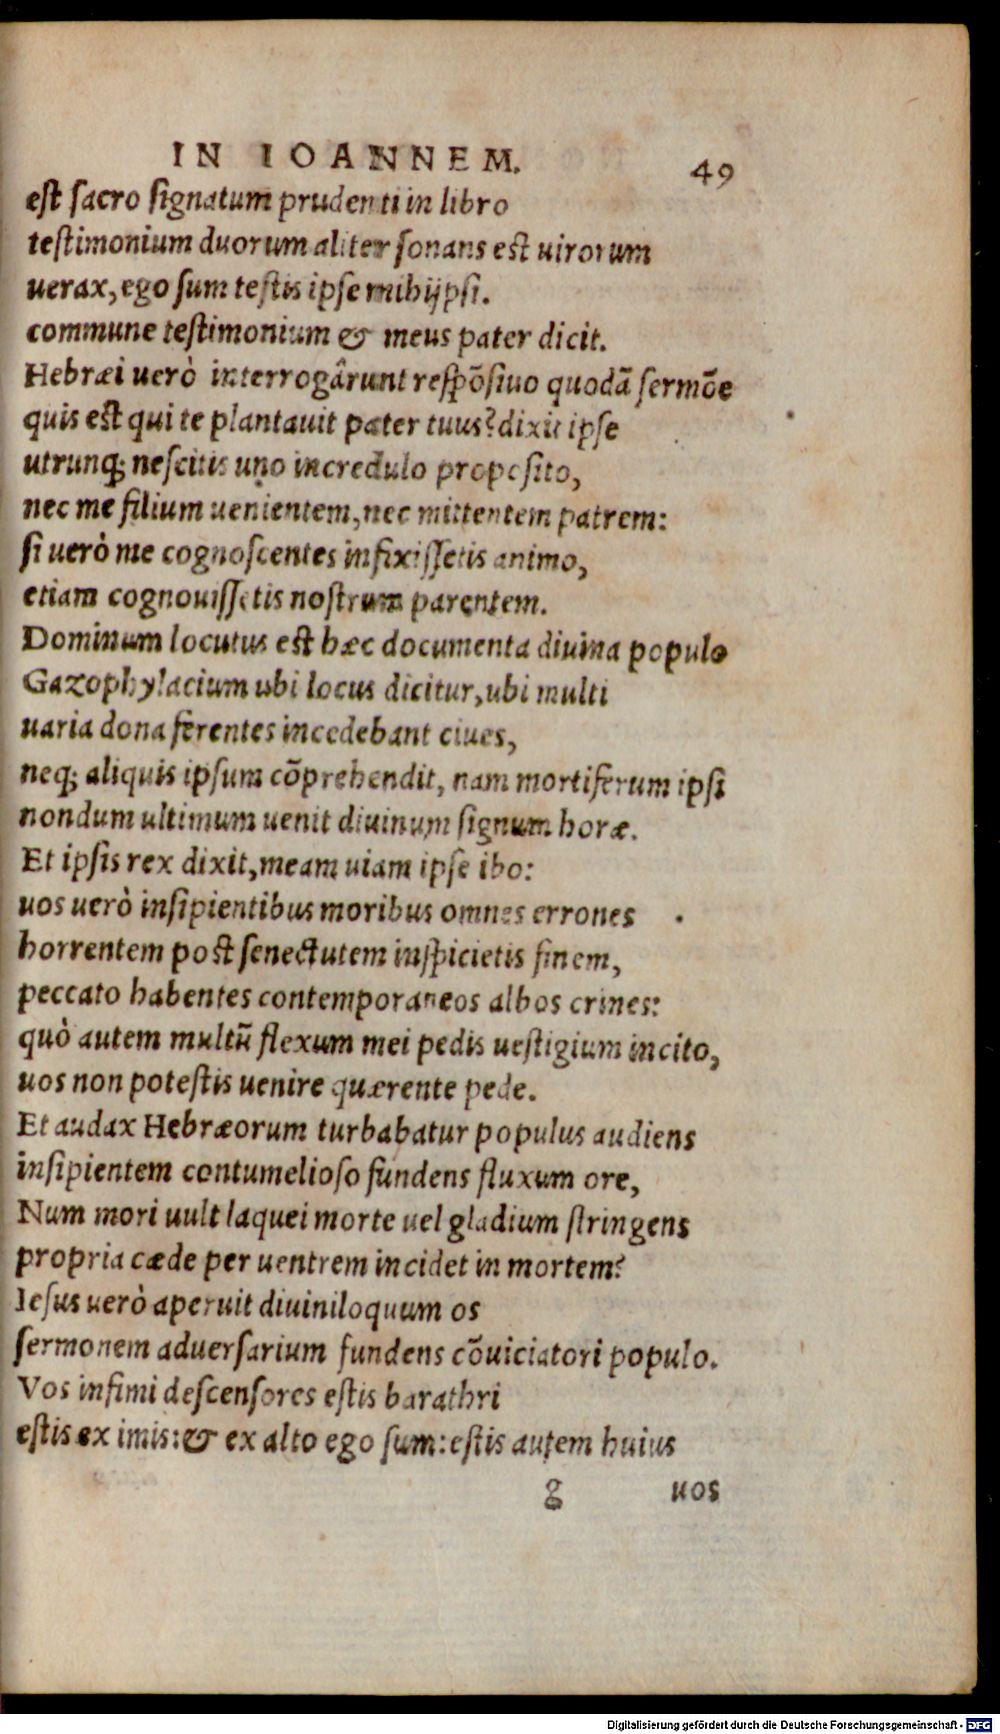 IN IOANNEM. 49
est sacro signatum prudenti in libro
testimonium duorum aliter sonans est uirorum
uerax, ego sum testis ipse mihijpsi.
commune testimonium & meus pater dicit.
Hebræi uerò interrogârunt respõsiuo quodã sermõe
quis est qui te plantauit pater tuus? dixit ipse
utrunq; nescitis uno incredulo proposito,
nec me filium uenientem, nec mittentem patrem:
si uerò me cognoscentes infixissetis animo,
etiam cognouissetis nostrum parentem.
Dominum locutus est hæc documenta diuina populo
Gazophylacium ubi locus dicitur, ubi multi
uaria dona ferentes incedebant ciues,
neq; aliquis ipsum cõprehendit, nam mortiferum ipsi
nondum ultimum uenit diuinum signum horæ.
Et ipsis rex dixit, meam uiam ipse ibo:
uos uerò insipientibus moribus omnes errones
horrentem post senectutem inspicietis finem,
peccato habentes contemporaneos albos crines:
quò autem multũ flexum mei pedis uestigium incito,
uos non potestis uenire quærente pede.
Et audax Hebræorum turbabatur populus audiens
insipientem contumelioso fundens fluxum ore,
Num mori uult laquei morte uel gladium stringens
propria cæde per uentrem incidet in mortem?
Iesus uerò aperuit diuiniloquum os
sermonem aduersarium fundens cõuiciatori populo.
Vos infimi descensores estis barathri
estis ex imis: & ex alto ego sum: estis autem huius
g uos
Digitalisierung gefördert durch die Deutsche Forschungsgemeinschaft - DFG